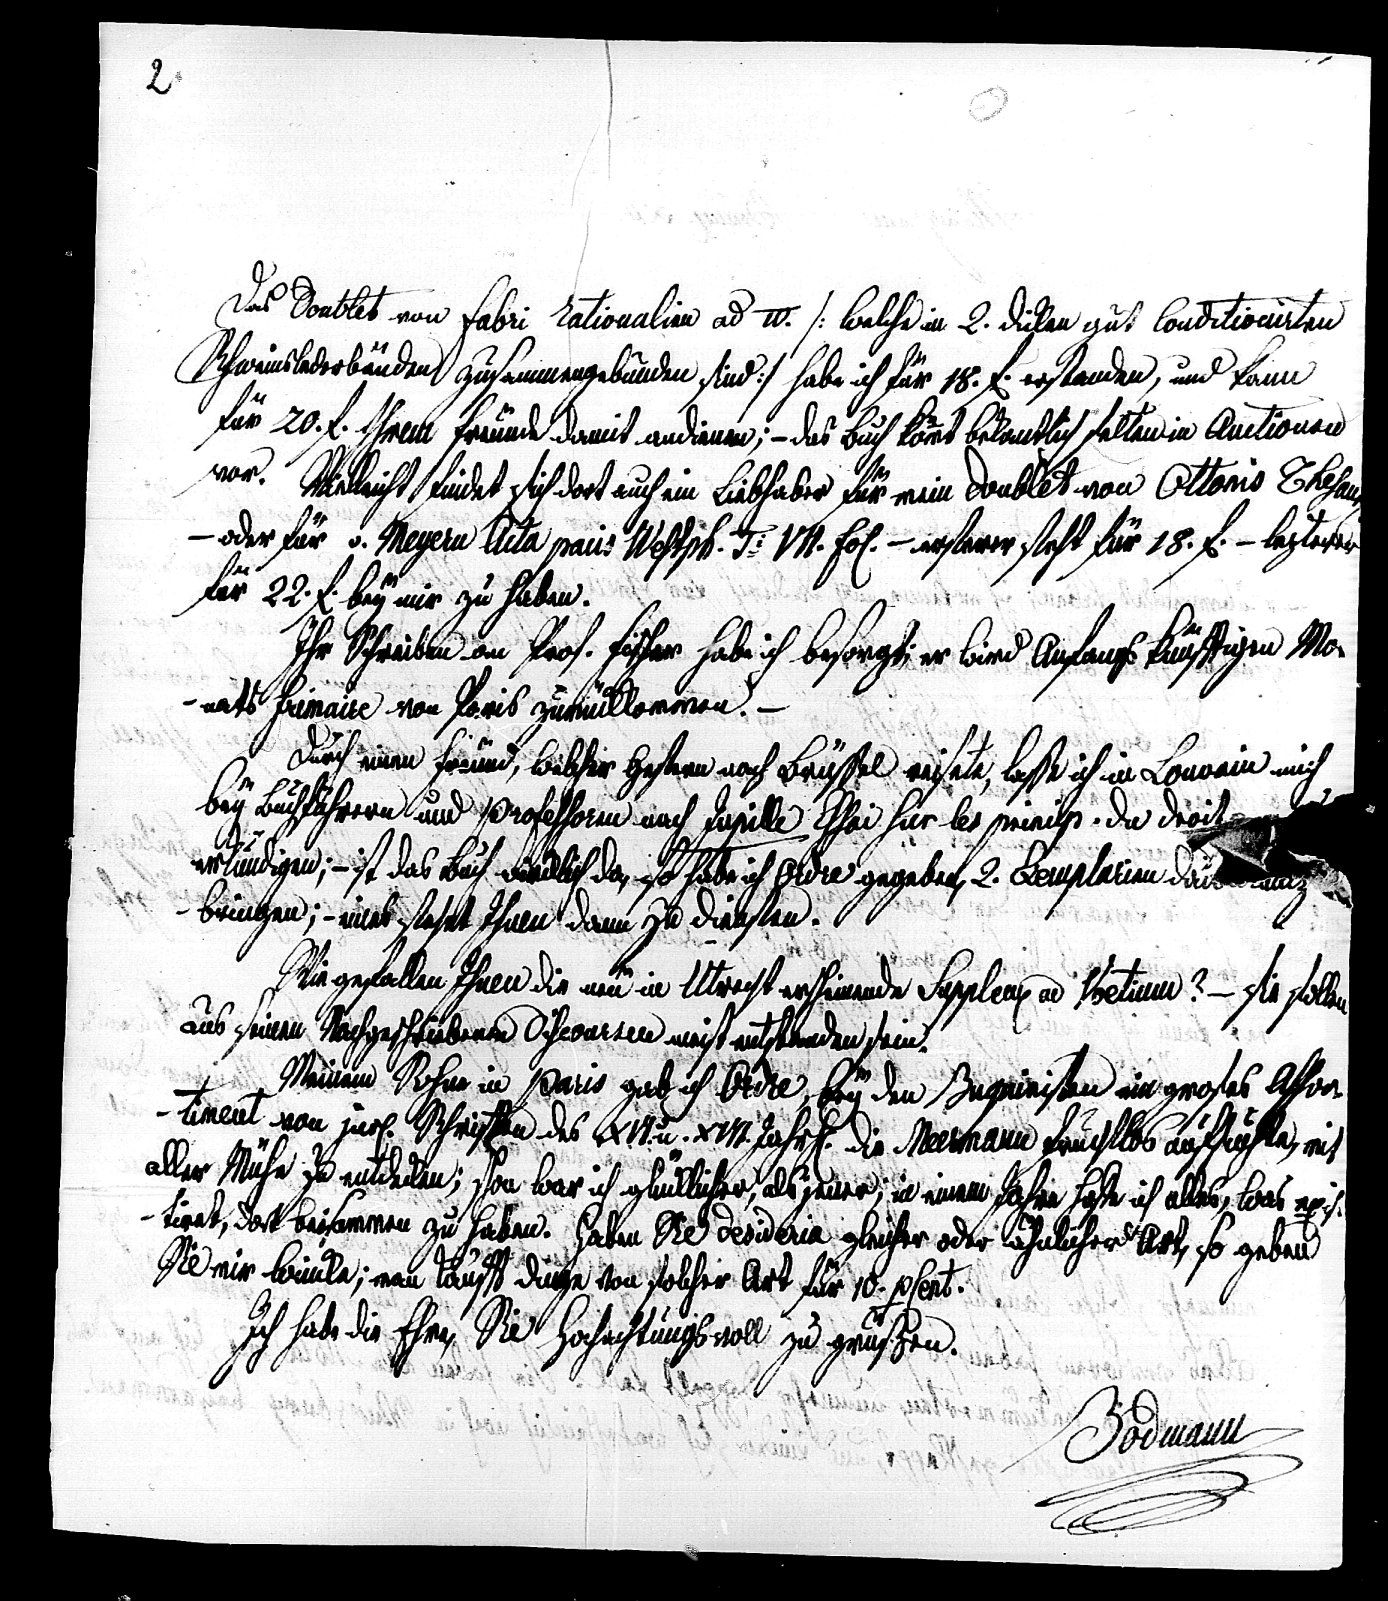 2.
Das Doublet von Fabri Rationalien ad ff. /: welche in 2. dicken gut conditionirten
Schweinslederbänden zusammengebunden sind :/ habe ich für 18. f. erstanden, und kann
für 20. f. Ihrem Freunde damit andienen; – das Buch kömt bekantlich selten in Auctionen
vor. Vielleicht findet sich dort auch ein Liebhaber für mein Doublet von Ottonis Thesaur.
– oder für v. Meyern Acta pacis Westph. T: VII. fol. – ersterer steht für 18. f. – lezterer
für 22. f. bey mir zu haben.
Ihr Schreiben an Prof. Fischer habe ich besorgt; er wird Anfangs künftigen Mo-
-nats frimaire von Paris zurückkommen. –
Durch einen Freund, welcher gestern nach Brüssel reisete, lasse ich in Louvain mich
bey Buchführern und Professoren nach Jupille Essai sur les princip. du droit
erkundigen; – ist das Buch wirklich da, so habe ich Ordre gegeben, 2. Exemplarien
-bringen; – eines stehet Ihnen dann zu diensten.
Wie gefallen Ihnen die neu in Utrecht erscheinende Supplem. ad Voetium? – sie sollen
aus seinen Nachgeschriebenen Discoursen meist entstanden sein.
Meinem Sohne in Paris gab ich Ordre, bey den Bouquinisten ein groses Assor-
-timent von jur. Schriften des XV. u. XVI. Jahrh. die Meermann fruchtlos aufsuchte, mit
aller Mühe zu entdecken; schon war ich glücklicher, als jener; in einem Jahre hoffe ich alles, was exis-
-tiret, dort beisammen zu haben. Haben Sie desideria gleicher oder ähnlicher Art, so geben
Sie mir Winke; man kauft dinge von solcher Art für 10. pCent.
Ich habe die Ehre, Sie Hochachtungsvoll zu grüssen.
Bodmann